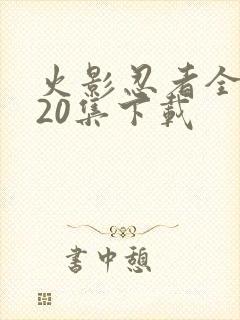 火影忍者全
20集下載
書中憩